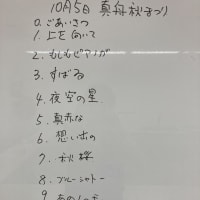 10月5日 真舟秋まつり
0. ごあいさつ
1. 上を向いて
2. もしもピアノが
3. すばる
4. 夜空の星
5. 真赤な
6. 想い出の
7. 秋桜
8. ブルーシャトー
9. あの